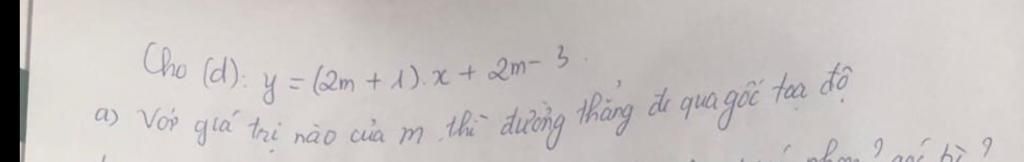 Cho (d): y = (2m + 1).x + 2m - 3.
a) Với giá trị nào của m thì đường thẳng đi qua gốc toạ độ